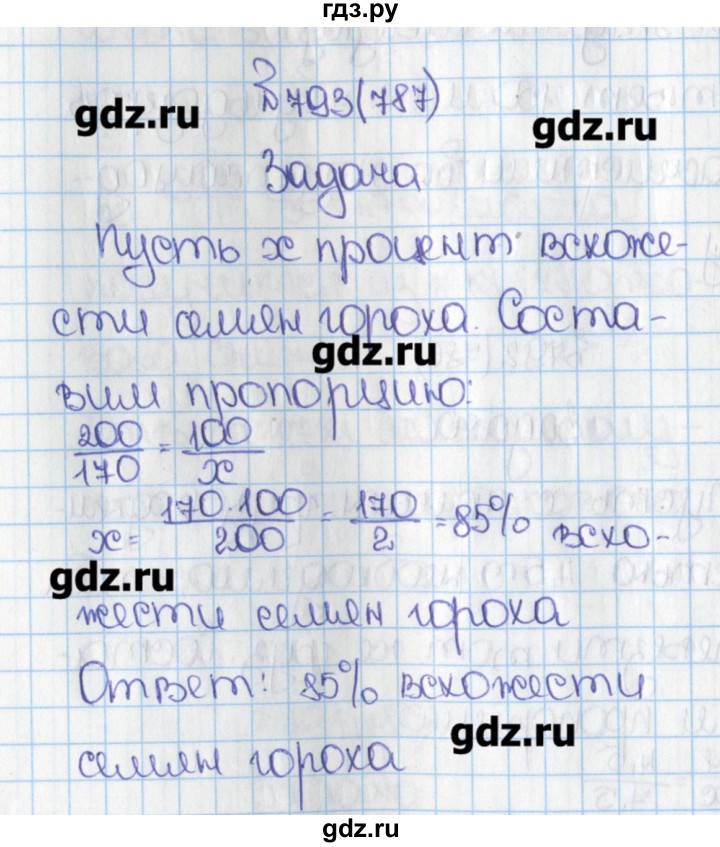 гдз.ру
№793(787)
gdz.ru
gdz.ru
Задача
Пусть x процент всхоже-
сти семян гороха. Соста-
gdz.ru
вим пропорцию:
200/170 = 100/x
x = 170·100/200 = 170/2 = 85% всхо-
gdz.ru
жести семян гороха
Ответ: 85% всхожести
gdz.ru
семян гороха
gdz.ru